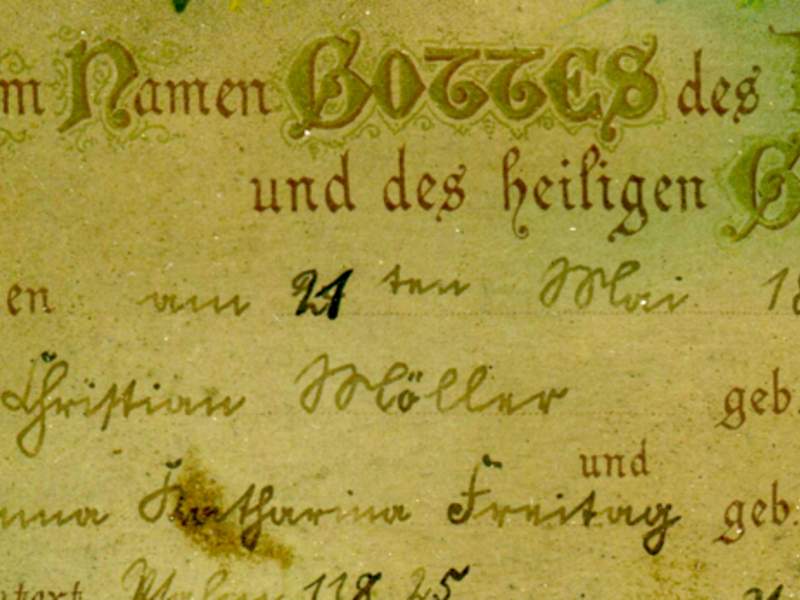 m Namen GOTTES des
und des heiligen G
en am 21 ten Mai 18
Christian Möller geb.
und
nna Katharina Freitag geb.
text Psalm 118, 25